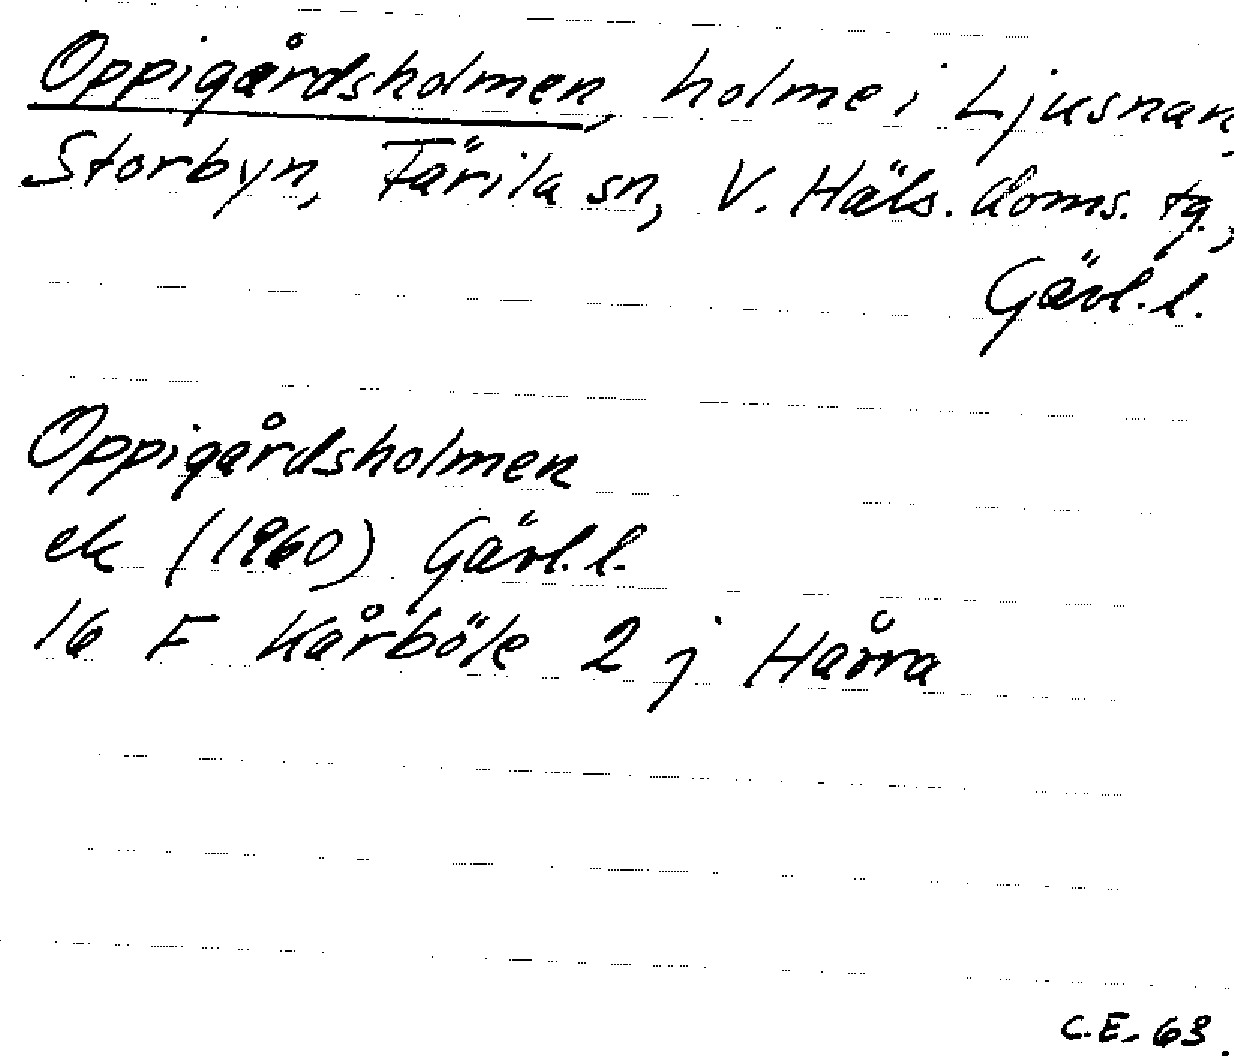 Oppigårdsholmen, holme i Ljusnan,
Storbyn, Färila sn, V. Häls. doms. tg.,
Gävl. l.
Oppigårdsholmen
ek (1960) Gävl. l.
16 F Kårböle 2 j Hårra
C.E. 63.